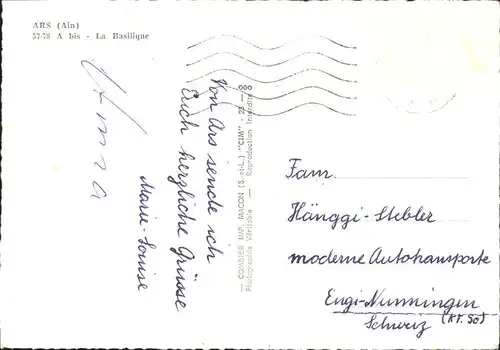 ARS (Ain)
57-78 A bis - La Basilique
Von Ars sende ich
Euch herzliche Grüsse
Marie-Louise
Anna
— COMBIER IMP. MACON (S.-et-L.) "CIM" -
Photographie Véritable — Reproduction Interdite
Fam.
Hänggi-Stebler
moderne Autotransporte
Engi-Nunningen
Schweiz (Kt. So)